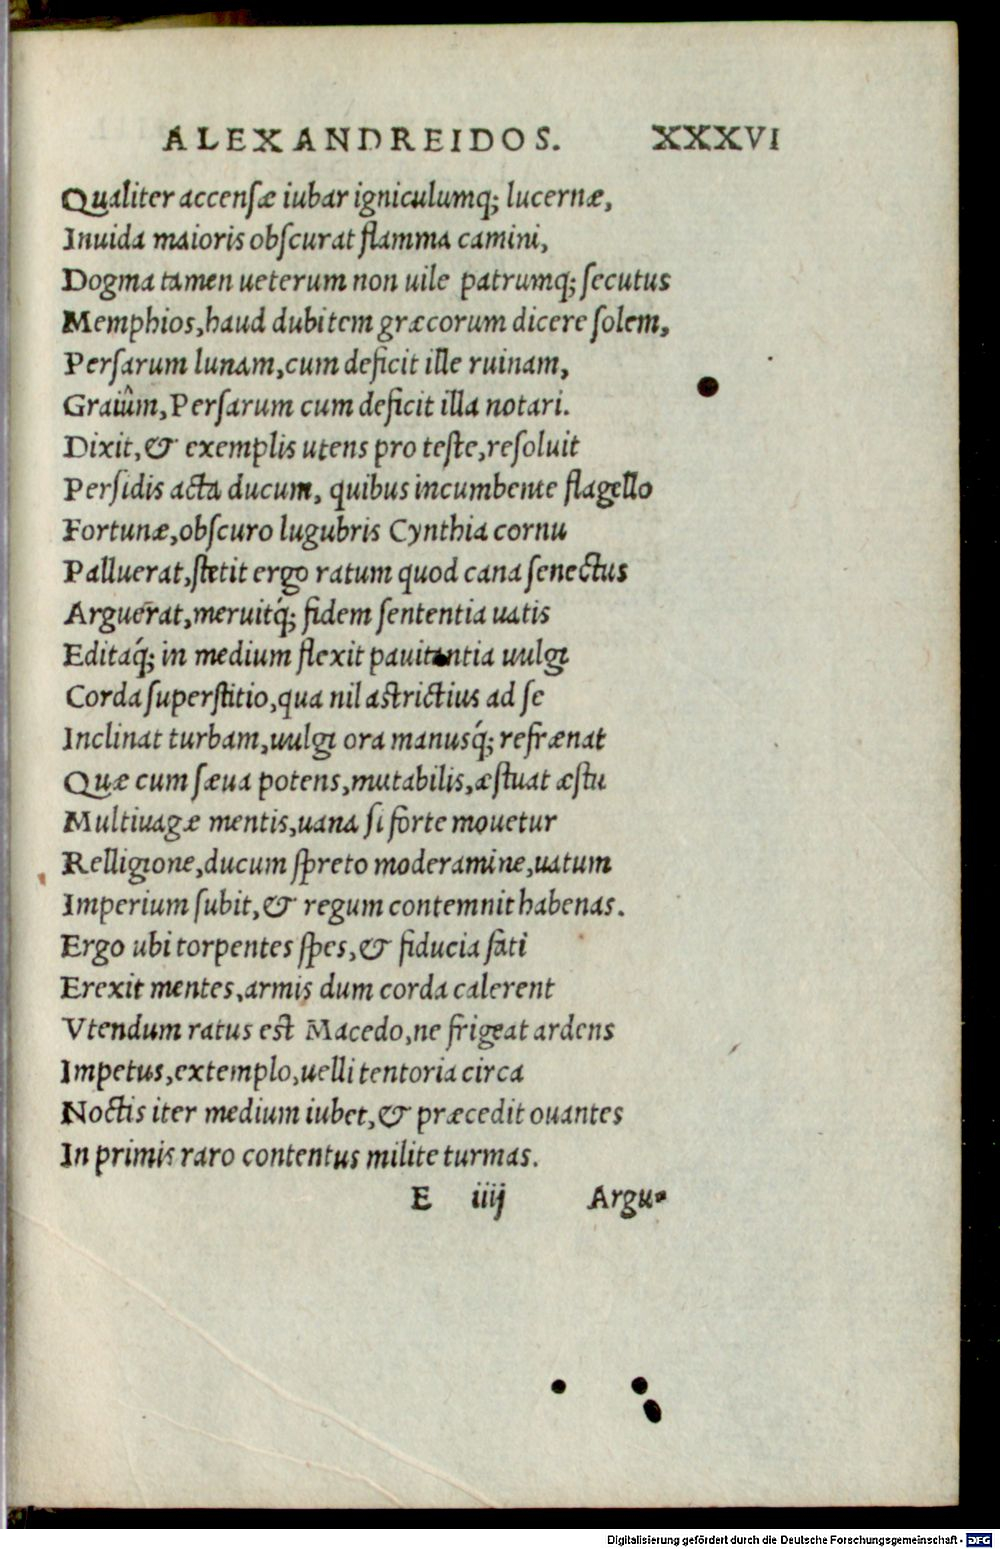 ALEXANDREIDOS. XXXVI
Qualiter accensæ iubar igniculumq; lucernæ,
Inuida maioris obscurat flamma camini,
Dogma tamen ueterum non uile patrumq; secutus
Memphios, haud dubitem græcorum dicere solem,
Persarum lunam, cum deficit ille ruinam,
Graiûm, Persarum cum deficit illa notari.
Dixit, & exemplis utens pro teste, resoluit
Persidis acta ducum, quibus incumbente flagello
Fortunæ, obscuro lugubris Cynthia cornu
Palluerat, stetit ergo ratum quod cana senectus
Arguerat, meruitq́; fidem sententia uatis
Editaq́; in medium flexit pauitantia uulgi
Corda superstitio, qua nil astrictius ad se
Inclinat turbam, uulgi ora manusq́; refrænat
Quæ cum sæua potens, mutabilis, æstuat æstu
Multiuagæ mentis, uana si forte mouetur
Relligione, ducum spreto moderamine, uatum
Imperium subit, & regum contemnit habenas.
Ergo ubi torpentes spes, & fiducia fati
Erexit mentes, armis dum corda calerent
Vtendum ratus est Macedo, ne frigeat ardens
Impetus, extemplo, uelli tentoria circa
Noctis iter medium iubet, & præcedit ouantes
In primis raro contentus milite turmas.
E iiij Argu-
Digitalisierung gefördert durch die Deutsche Forschungsgemeinschaft - DFG